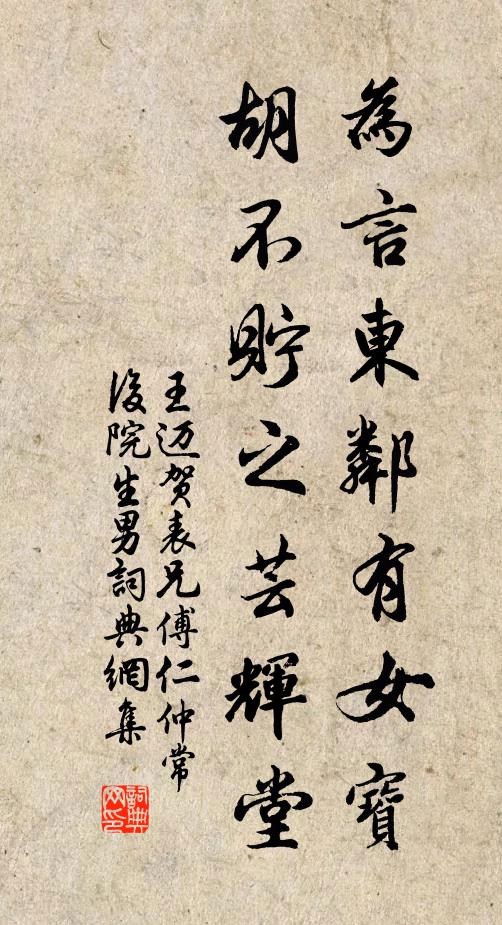 為言東鄰有女寶
胡不貯之芸輝堂
王迈贺表兄傅仁仲常
後院生男詞典網集
詞典
网印